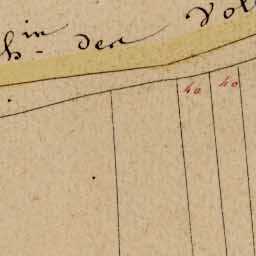 in den Vol
40 40